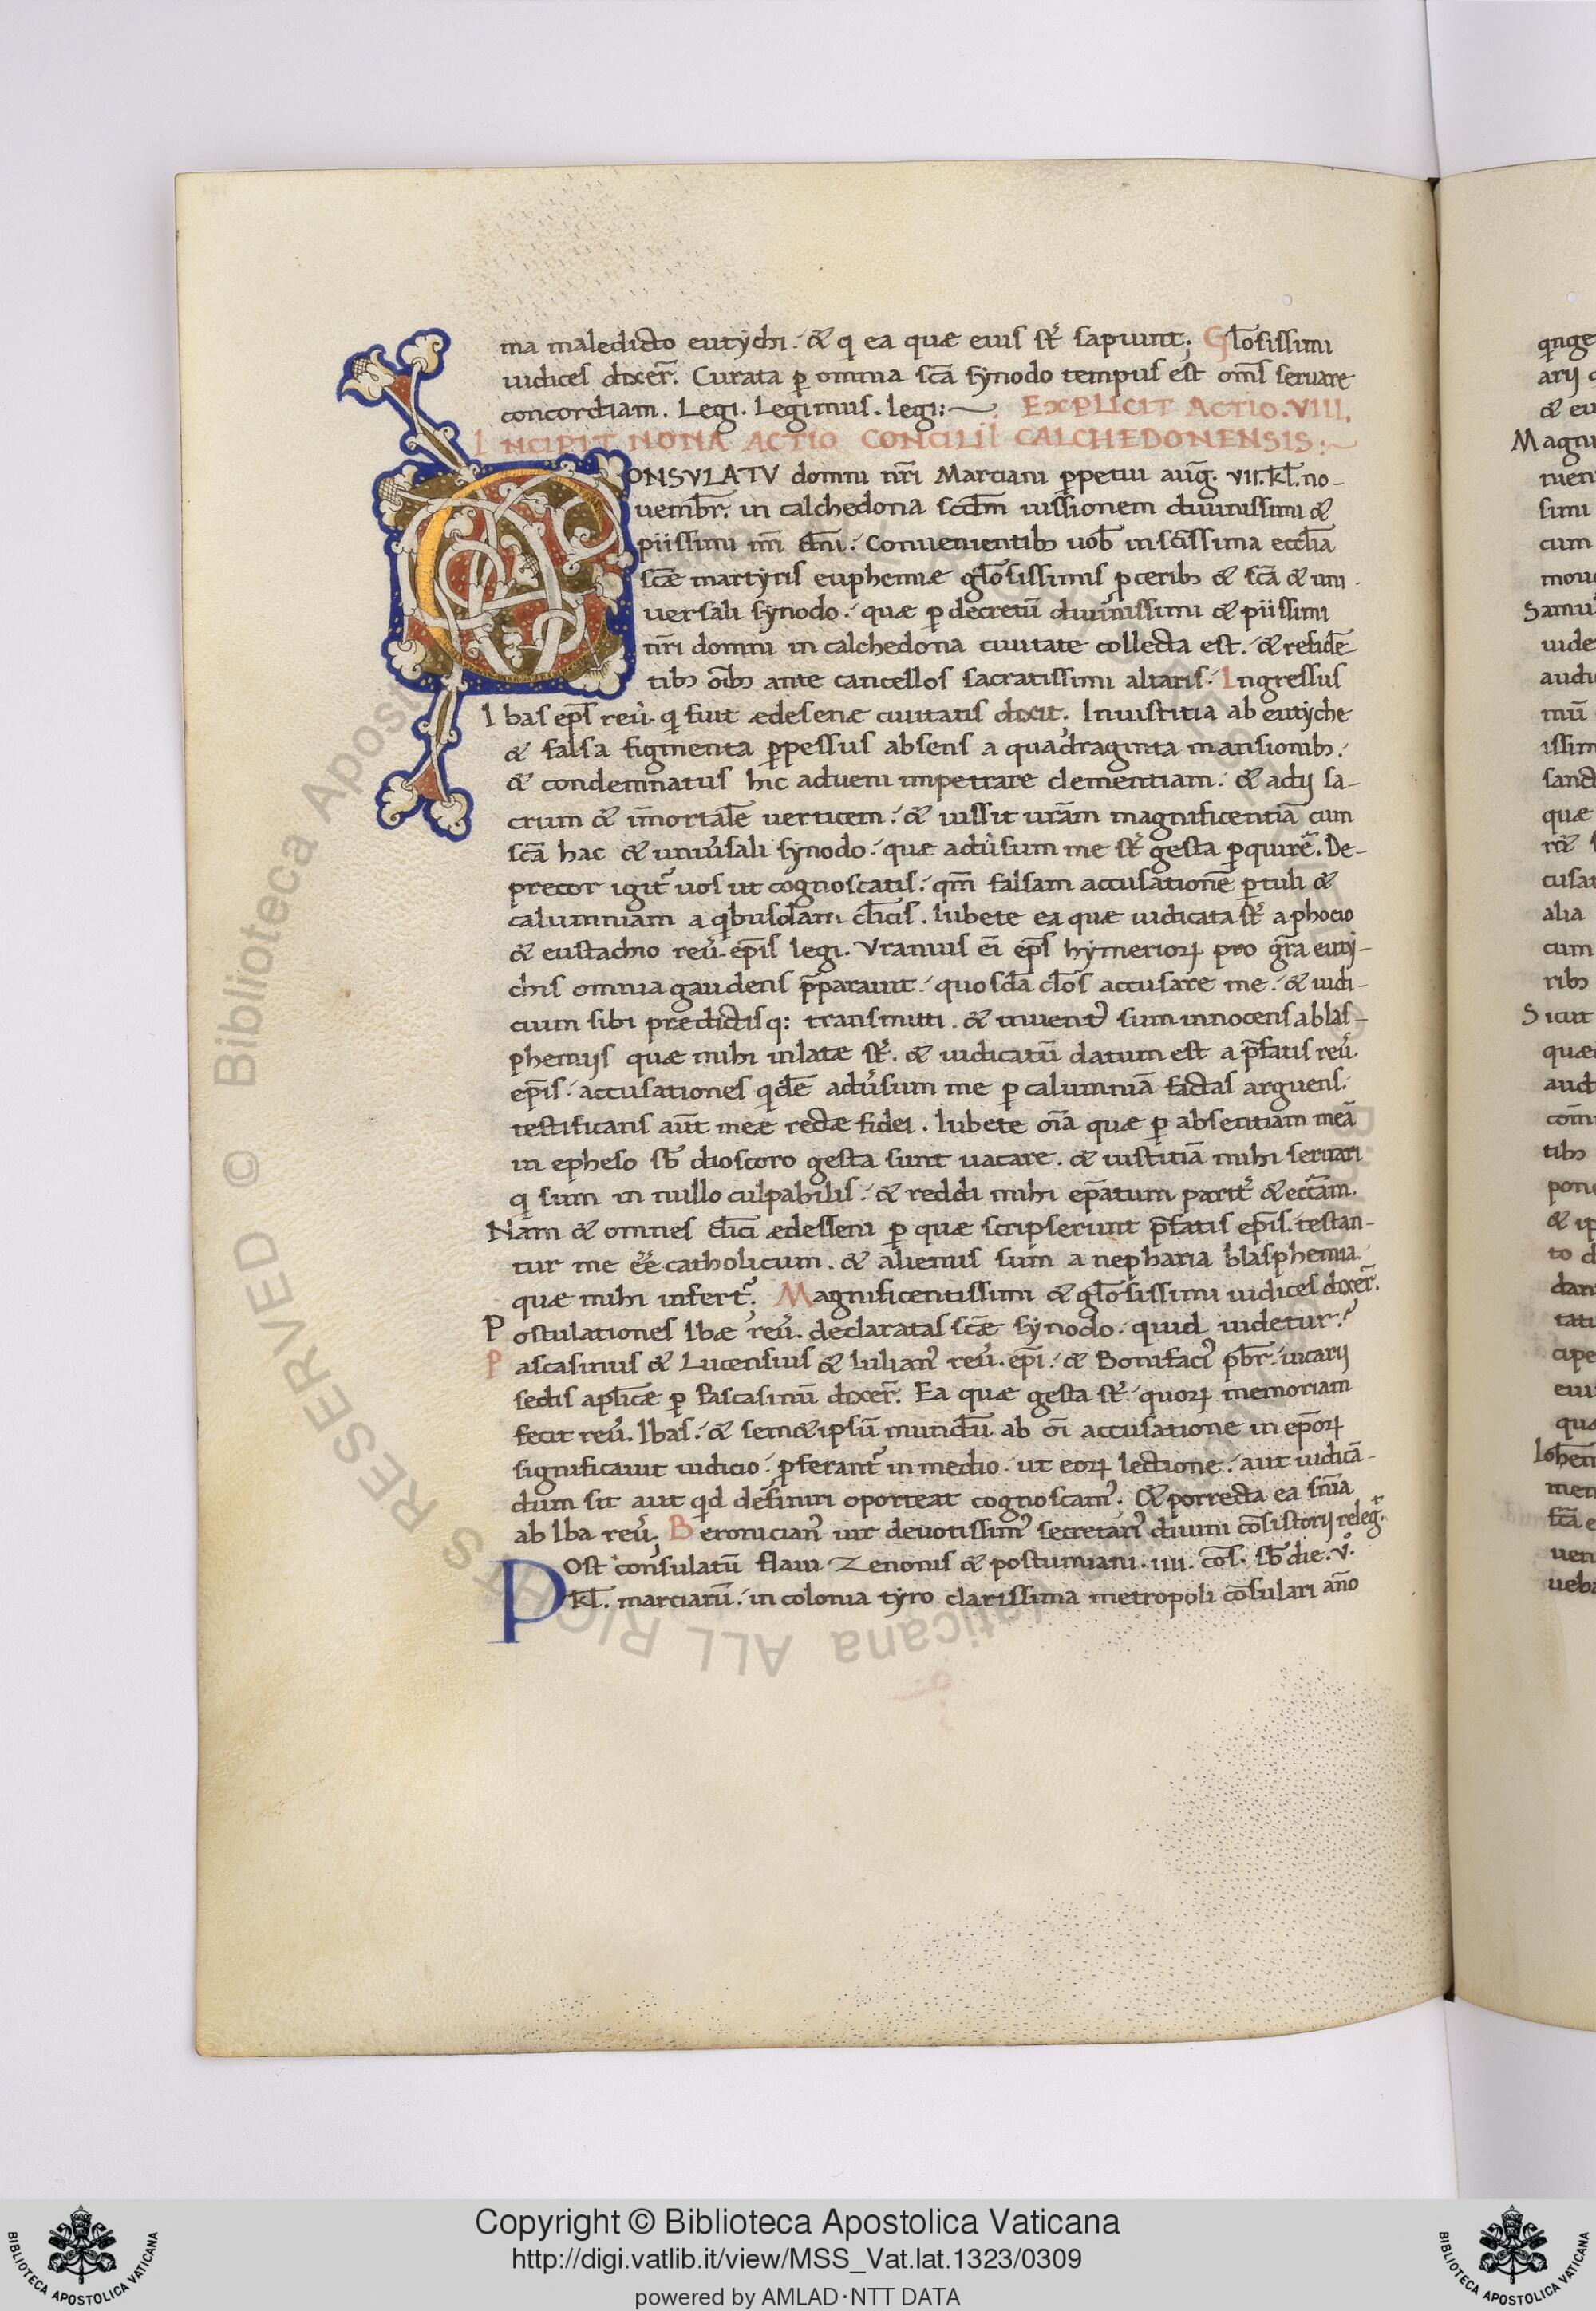 ma maledicto eutychi. & q ea quæ eius st̄ sapiunt; Gl̄osissimi
iudices dixer̄. Curata p̱ omnia sc̄a synodo tempus est om̄s seruare
concordiam. Legi. Legimus. legi:~ EXPLICIT ACTIO.VIII.
INCIPIT NONA ACTIO CONCILII CALCHEDONENSIS:~
CONSVLATV domni nr̄i Marciani p̱petui auḡ. VII. kl̄. no-
uembr̄. in calchedona scd̄m iussionem diuinissimi &
piissimi nr̄i dn̄i. Conuenientib; uob̄ in sc̄issima eccl̄ia
sc̄æ martyris euphemiæ gl̄osissimis p̱cerib; & sc̄a & uni
uersali synodo. quæ p̱ decretū diuinissimi & piissimi
nr̄i domni in calchedona ciuitate collecta est. & residē
tib; oīb; ante cancellos sacratissimi altaris. Ingressus
Ibas ep̄s reu̅. q fuit ædesenæ ciuitatis dixit. Iniustitia ab eutyche
& falsa figmenta p̱pessus absens a quadraginta mansionib;.
& condemnatus hic adueni impetrare clementiam. & adij sa-
crum & im̄ortalē uerticem. & iussit ur̄am magnificentiā cum
sc̄a hac & uniu̅sali synodo. quæ adu̅sum me st̄ gesta p̱quirē. De-
precor igit̄ uos ut cognoscatis. qm̄ falsam accusationē p̱tuli &
calumniam a qbusdam cl̄icis. Iubete ea quæ iudicata st̄ a phocio
& eustachio reu̅. ep̄is legi. Vranius ei̅ ep̄s hymerioꝝ pro gr̄a euty-
chis omnia gaudens p̄parauit. quosdā cl̄os accusare me. & iudi-
cium sibi predictisq: transmitti. & inuent̄ sum innocens a blas-
phemijs quæ mihi inlatæ st̄. & iudicatū datum est a p̄fatis reu̅.
ep̄is. accusationes qdē adu̅sum me p̱ calumniā factas arguens.
testificans aūt meæ rectæ fidei. Iubete om̄a quæ p̱ absentiam meā
in epheso sb̄ dioscoro gesta sunt uacare. & iustitiā mihi seruari
q sum in nullo culpabilis. & reddi mihi ep̄atum parit̄ & ecc̄am.
Nam & omnes cl̄ici ædesseni p̱ quæ scripserunt p̄fatis ep̄is. testan-
tur me ēē catholicum. & alienus sum a nepharia blasphemia.
quæ mihi infert̄; Magnificentissimi & gl̄osissimi iudices dixer̄.
Postulationes Ibæ reu̅. declaratas sc̄æ synodo. quid uidetur?
Pascasinus & Lucensius & Iulian̄ reu̅. ep̄i. & Bonifaci̅ pb̄r. uicarij
sedis apl̄icæ p̱ Pascasinū dixer̄. Ea quæ gesta st̄. quoꝝ memoriam
fecit reu̅. Ibas. & sem&ipsū mundū ab oī accusatione in ep̄oꝝ
significauit iudicio. p̱ferant̄ in medio. ut eoꝝ lectione. aut iudicā-
dum sit aut qd definiri oporteat cognoscam̄. & porrecta ea sn̄ia
ab Iba reu̅; Beronician̄ uir deuotissim̄ secretari̅ diuini cōsistorij releg̅.
Post consulatū flaui Zenonis & postumiani. IIII. cōs. sb̄ die. V.
kl̄. marciarū. in colonia tyro clarissima metropoli cōsulari an̄o
Copyright © Biblioteca Apostolica Vaticana
http://digi.vatlib.it/view/MSS_Vat.lat.1323/0309
powered by AMLAD·NTT DATA
BIBLIOTECA APOSTOLICA VATICANA
BIBLIOTECA APOSTOLICA VATICANA